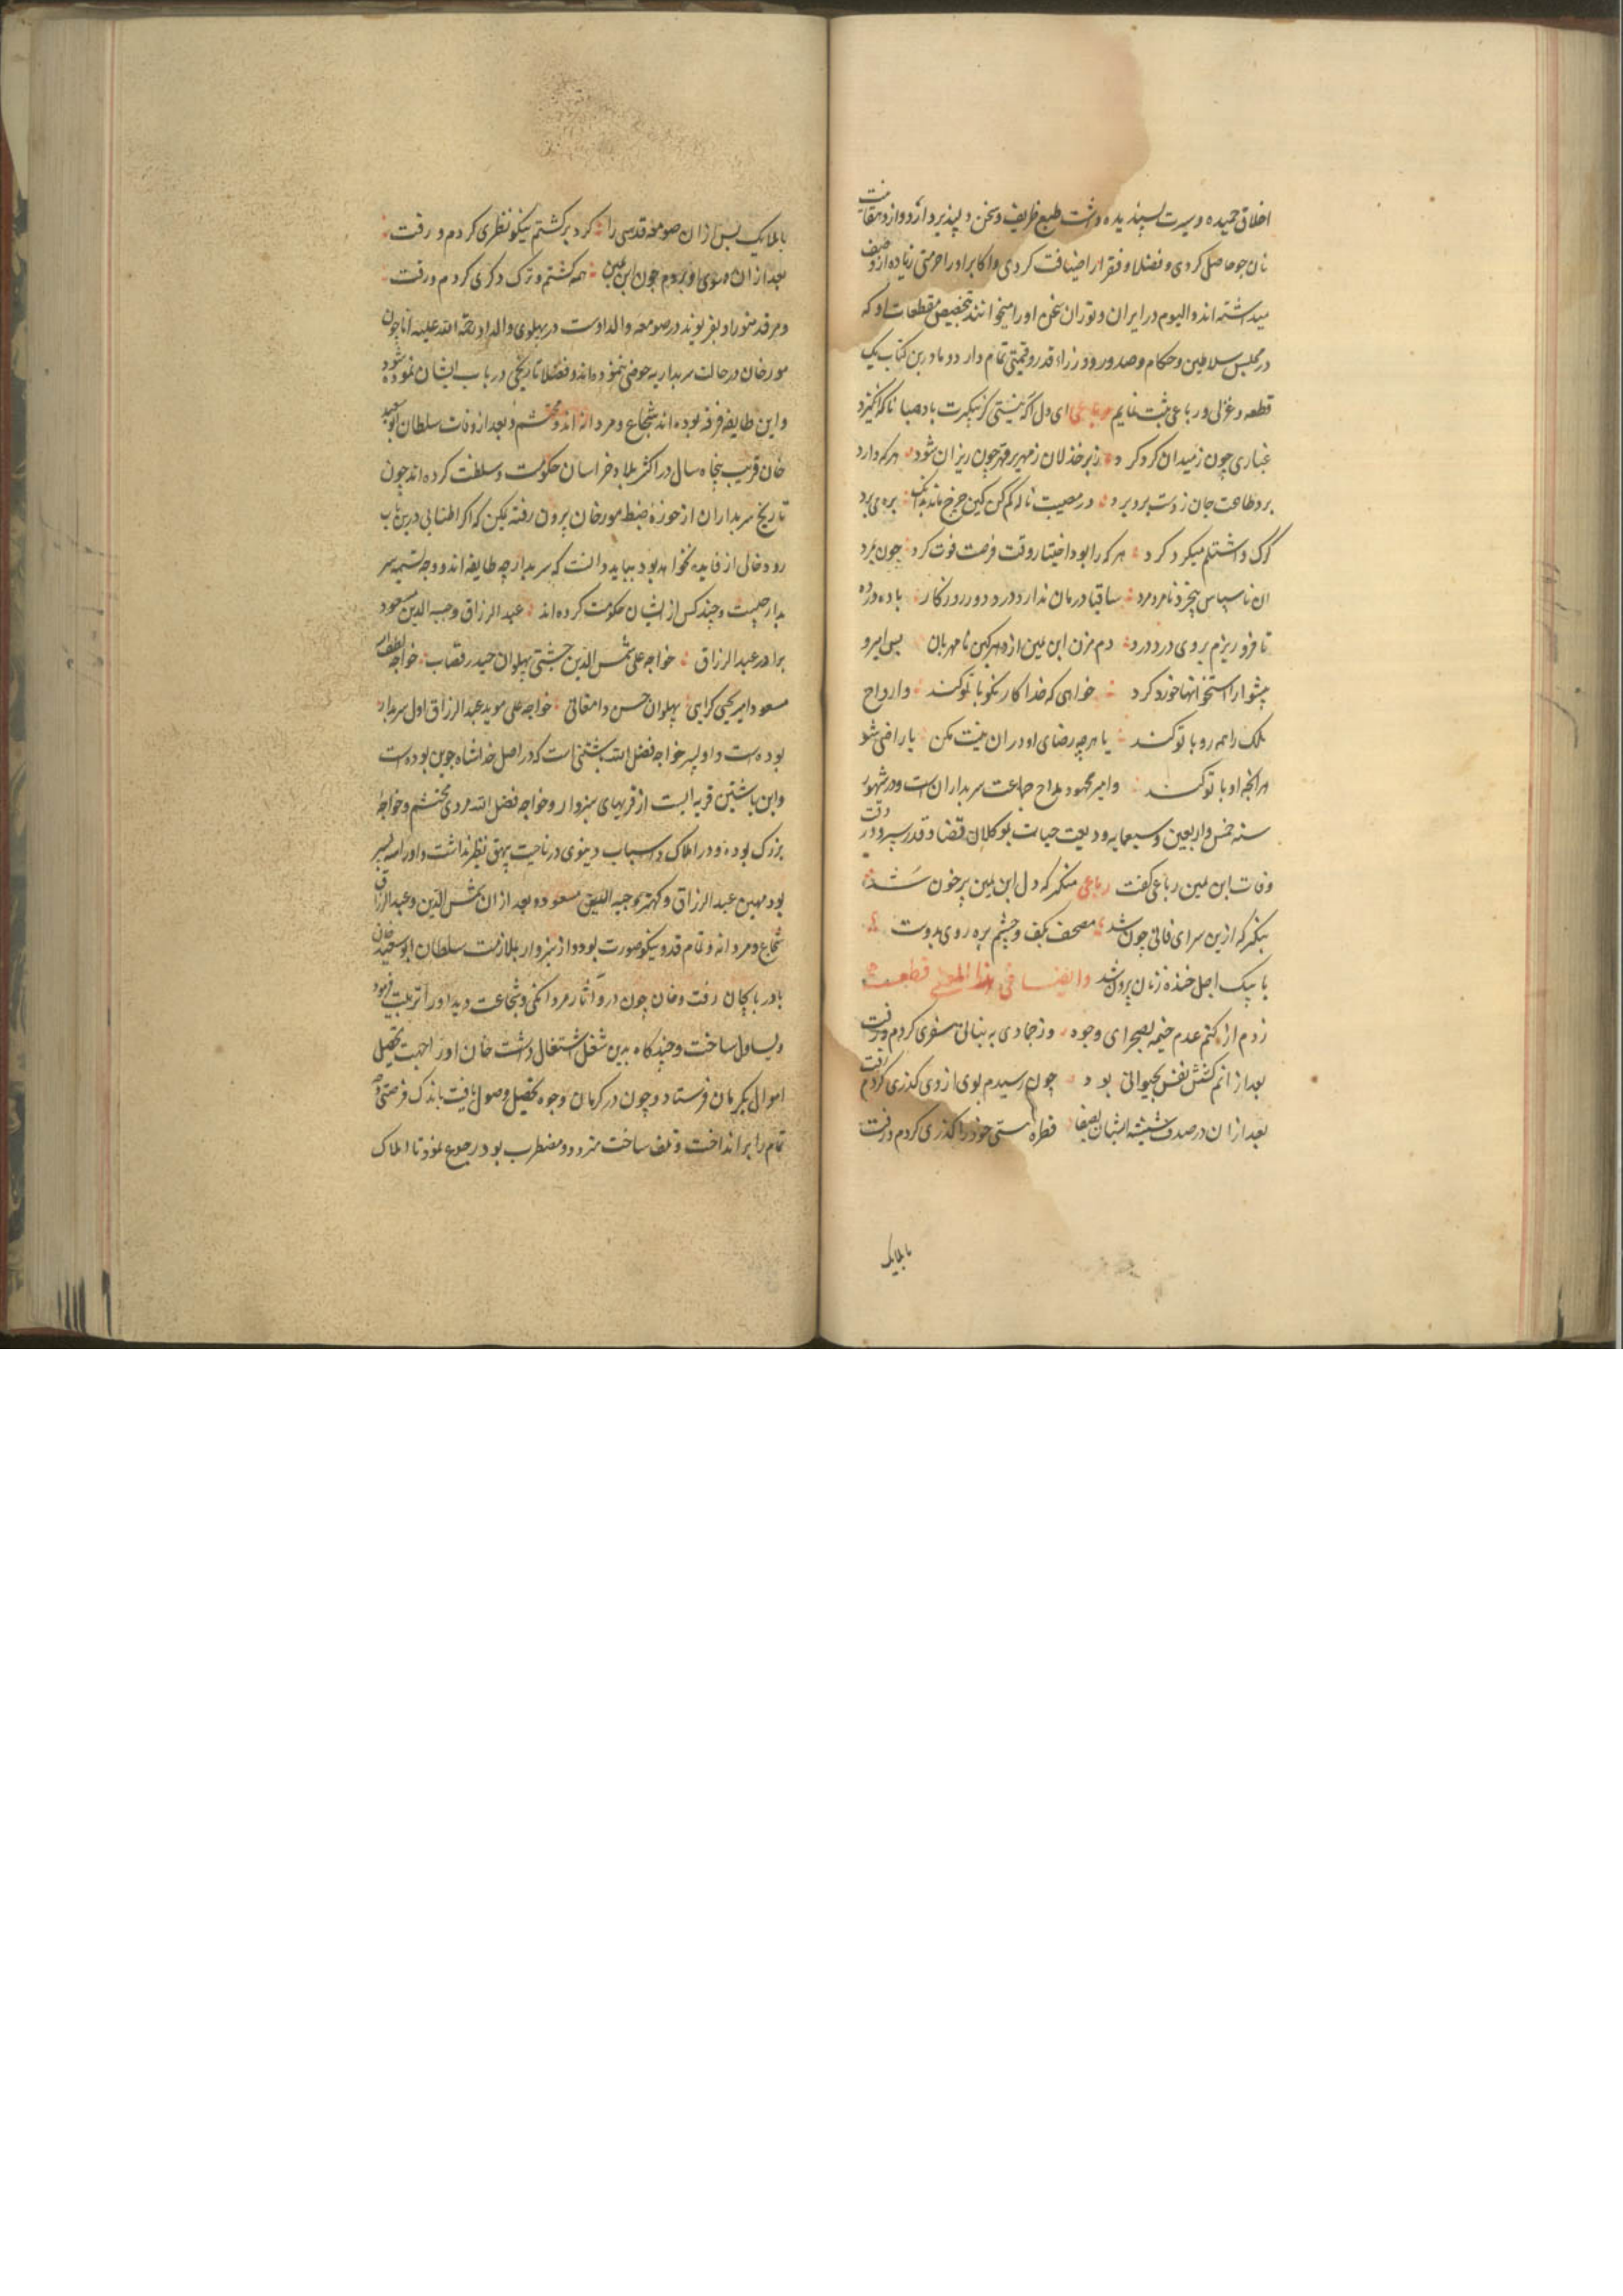 اخلاق حمیده و سیرت پسندیده داشت طبع ظریف و سخن دلپذیر دارد و از دهقانیت
نان جو حاصل کردی و فضلا و فقرا را ضیافت کردی و اکابر او را حرمتی زیاده از وصف
میداشته اند و الیوم در ایران و توران سخن او را میخوانند بتخصیص مقطعات او که
در مجلس سلاطین و حکام و صدور و وزراء قدر و قیمتی تمام دارد و ما درین کتاب یک
قطعه و غزلی و رباعی ثبت نمایم رباعی ای دل اکه نیستی کز پیکرت باد صبا ناکه انکیزد
غباری چون ز میدان کرد کرد زیر خذلان زمهریر قهر چون ریزان شود هر که دارد
برد طاعت جان ز دست برد برد در مصیبت ناله کم کن کین چرخ ماند بدانک بره می برد
کرک و اشتلم میکرد کرد هر که را بود اختیار وقت فرصت فوت کرد چون بمرد
ان ناسپاس بیخرد نامرد مرد ساقیا درمان ندارد درد دور روزکار باده در ده
تا فرو ریزم بروی درد درد دم مزن ابن یمین از دهر کین نامهربان بس امیر و
پیشوا را استخوانها خورد کرد خواهی که خدا کار نکو با تو کند وارواح
ملک را همه رو با تو کند یا هرچه رضای او در ان نیست مکن یا راضی شو
هر انچه او با تو کند و امیر محمود مداح جماعت سربداران است و در شهور
سنه خمس و اربعین و سبعمایه ودیعت حیات بوکلان قضا و قدر سپرد و در وقت
وفات ابن یمین رباعی کفت رباعی منکر که دل ابن یمین پر خون شد
بنکر که ازین سرای فانی چون شد مصحف بکف و چشم بره روی بدوست
با پیک اجل خنده زنان بیرون شد وایضا فی هذا المعنی قطعه
زدم از کتم عدم خیمه بصحرای وجود وز جمادی به نباتی سفری کردم و رفت
بعد از انم کشش نفس بحیوانی بود چون رسیدم بوی از وی کذری کردم و رفت
بعد از ان در صدف سینه انسان بصفا قطره هستی خود را کذری کردم و رفت
با ملایک
با ملایک پس از ان صومعه قدسی را کرد برکشتم نیکو نظری کردم و رفت
بعد از ان ره سوی او بردم چون ابن یمین همه کشتم و ترک دکری کردم و رفت
و مرقد منور او بفریومد در صومعه والد اوست در پهلوی والد او رحمة الله علیه اما چون
مورخان در حالت سربداریه خوضی ننموده اند و فضلا تاریخی در باب ایشان ننموده
و این طایفه فرقه بوده اند شجاع و مردانه اند و محتشم و بعد از وفات سلطان ابو سعید
خان قریب پنجاه سال در اکثر بلاد خراسان حکومت و سلطنت کرده اند چون
تاریخ سربداران از حوزه ضبط مورخان بیرون رفته یمکن که اکر اطنابی درین باب
رود خالی از فایده نخواهد بود بباید دانست که سربدار چه طایفه اند و وجه تسمیه سر
بدار چیست و چند کس از ایشان حکومت کرده اند عبد الرزاق وجیه الدین مسعود
برادر عبد الرزاق خواجه علی شمس الدین جشتی پهلوان حیدر قصاب خواجه لطف الله
مسعود امیر یحیی کرابی پهلوان حسن دامغانی خواجه علی موید عبد الرزاق اول سربدار
بوده است و او پسر خواجه فضل الله باشتنی است که در اصل خداشاه جوین بوده است
و این باشتین قریه ایست از قریهای سبزوار و خواجه فضل الله مردی محتشم و خواجه
بزرک بوده و در املاک و اسباب دنیوی در ناحیت بیهق نظیر نداشت و او را سه پسر
بود مهین عبد الرزاق و کهتر وجیه الدین مسعود و بعد از ان شمس الدین و عبد الرزاق
شجاع و مردانه و تمام قد و نیکو صورت بود و از سبزوار بملازمت سلطان ابو سعید خان
باذربایجان رفت و خان چون درو آثار مردانکی و شجاعت دید او را تربیت فرمود
و یساول ساخت و چند کاه بدین شغل اشتغال داشت خان او را جهت تحصیل
اموال بکرمان فرستاد و چون در کرمان وجوه تحصیل وصول یافت باندک فرصتی وجه
تمام را برانداخت و تلف ساخت متردد و مضطرب بود رجوع نمود تا املاک